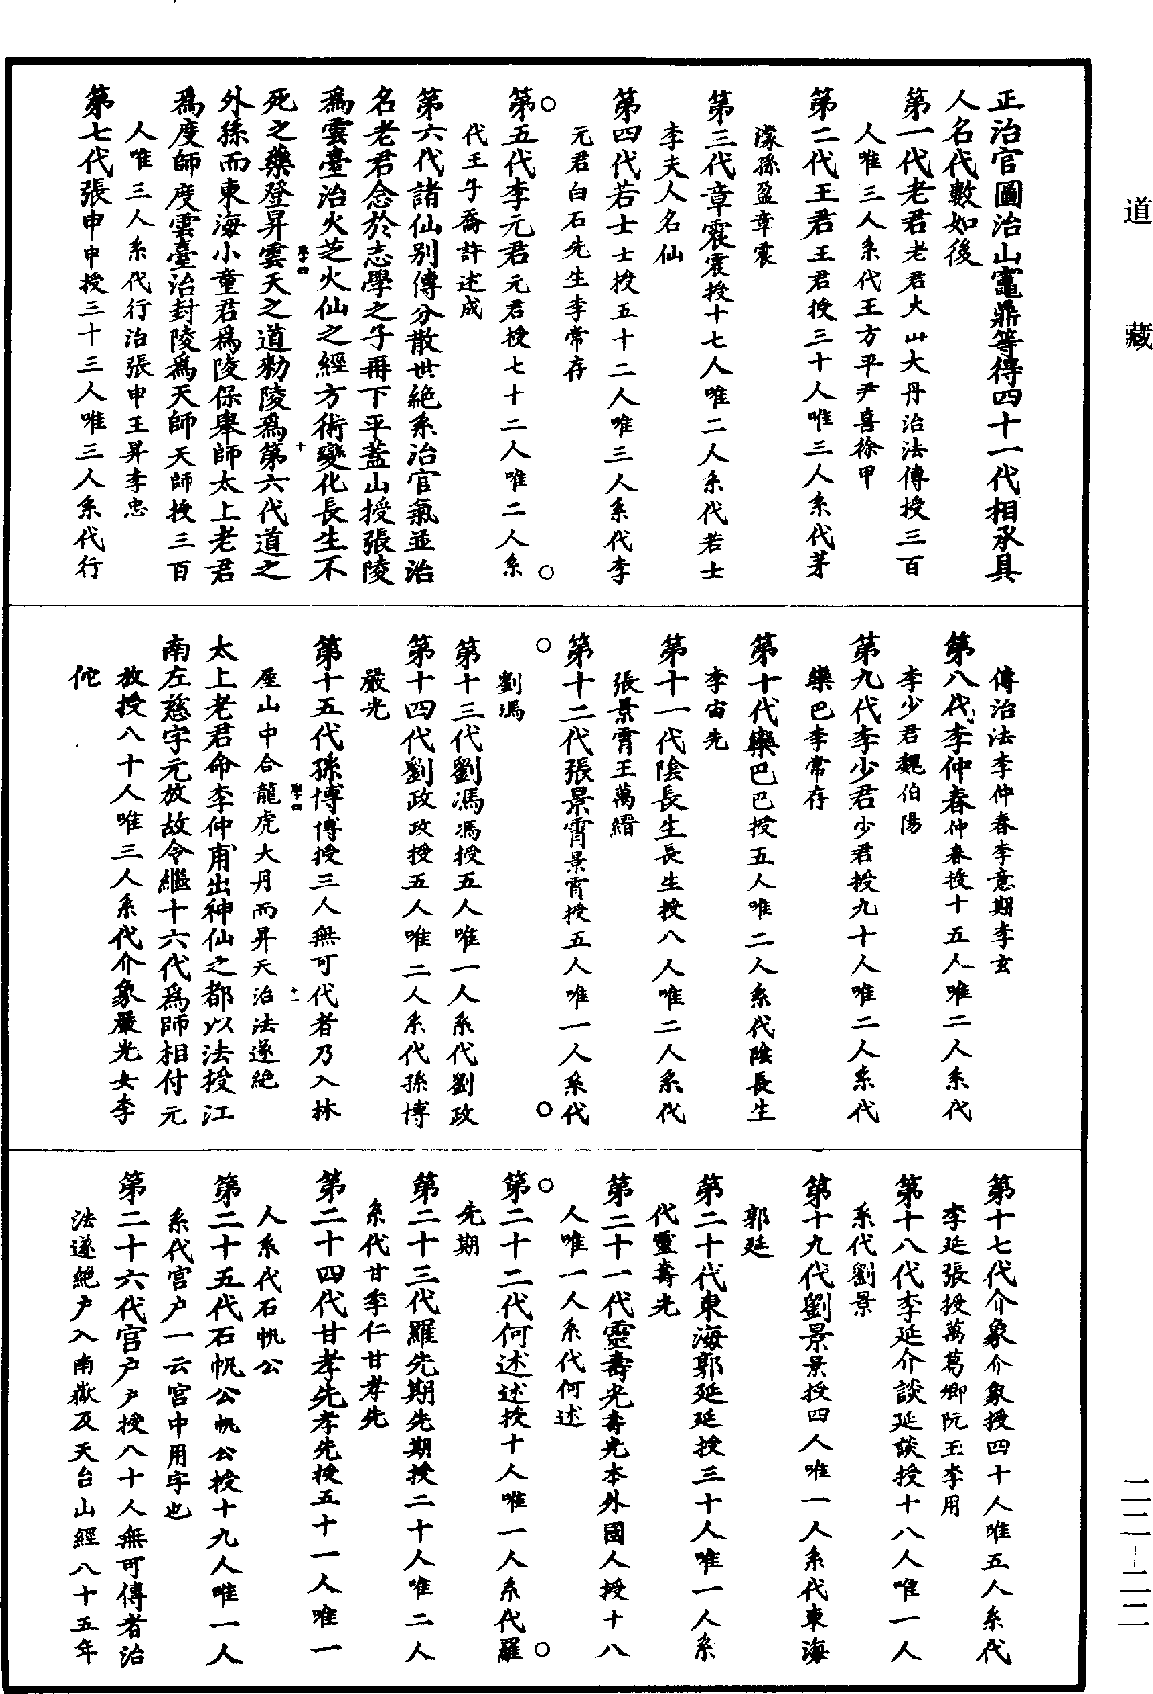 道藏
正治官圖治山竈鼎等得四十一代相承具
人名代數如後
第一代老君老君大山大丹治法傳授三百
人唯三人系代王方平尹喜徐甲
第二代王君王君授三十人唯三人系代茅
濛孫盈章震
第三代章震震授十七人唯二人系代若士
李夫人名仙
第四代若士士授五十二人唯三人系代李
元君白石先生李常存
第五代李元君元君授七十二人唯二人系
代王子喬許述成
第六代諸仙别傳分散世絶系治官氣並治
名老君念於志學之子再下平蓋山授張陵
爲雲臺治火芝火仙之經方術變化長生不
死之藥登昇雲天之道勑陵爲第六代道之
外孫而東海小童君爲陵保舉師太上老君
爲度師度雲臺治封陵爲天師天師授三百
人唯三人系代行治張申王昇李忠
第七代張申申授三十三人唯三人系代行
傳治法李仲春李意期李玄
第八代李仲春仲春授十五人唯二人系代
李少君魏伯陽
第九代李少君少君授九十人唯二人系代
欒巴李常存
第十代欒巴巴授五人唯二人系代陰長生
李宙先
第十一代陰長生長生授八人唯二人系代
張景霄王萬縉
第十二代張景霄景霄授五人唯一人系代
劉馮
第十三代劉馮馮授五人唯一人系代劉政
第十四代劉政政授五人唯二人系代孫博
嚴光
第十五代孫博博授三人無可代者乃入林
屋山中合龍虎大丹而昇天治法遂絶
太上老君命李仲甫出神仙之都以法授江
南左慈字元放故令繼十六代爲師相付元
放授八十人唯三人系代介象嚴光女李
佗
第十七代介象介象授四十人唯五人系代
李延張授萬葛鄉阮玉李用
第十八代李延介談延談授十八人唯一人
系代劉景
第十九代劉景景授四人唯一人系代東海
郭延
第二十代東海郭延延授三十人唯一人系
代靈壽光
第二十一代靈壽光壽光本外國人授十八
人唯一人系代何述
第二十二代何述述授十人唯一人系代羅
先期
第二十三代羅先期先期授二十人唯二人
系代甘季仁甘孝先
第二十四代甘孝先孝先授五十一人唯一
人系代石帆公
第二十五代石帆公帆公授十九人唯一人
系代宫户一云宫中用字也
第二十六代宫户户授八十人無可傳者治
法遂絶户入南嶽及天台山經八十五年
二二-二二